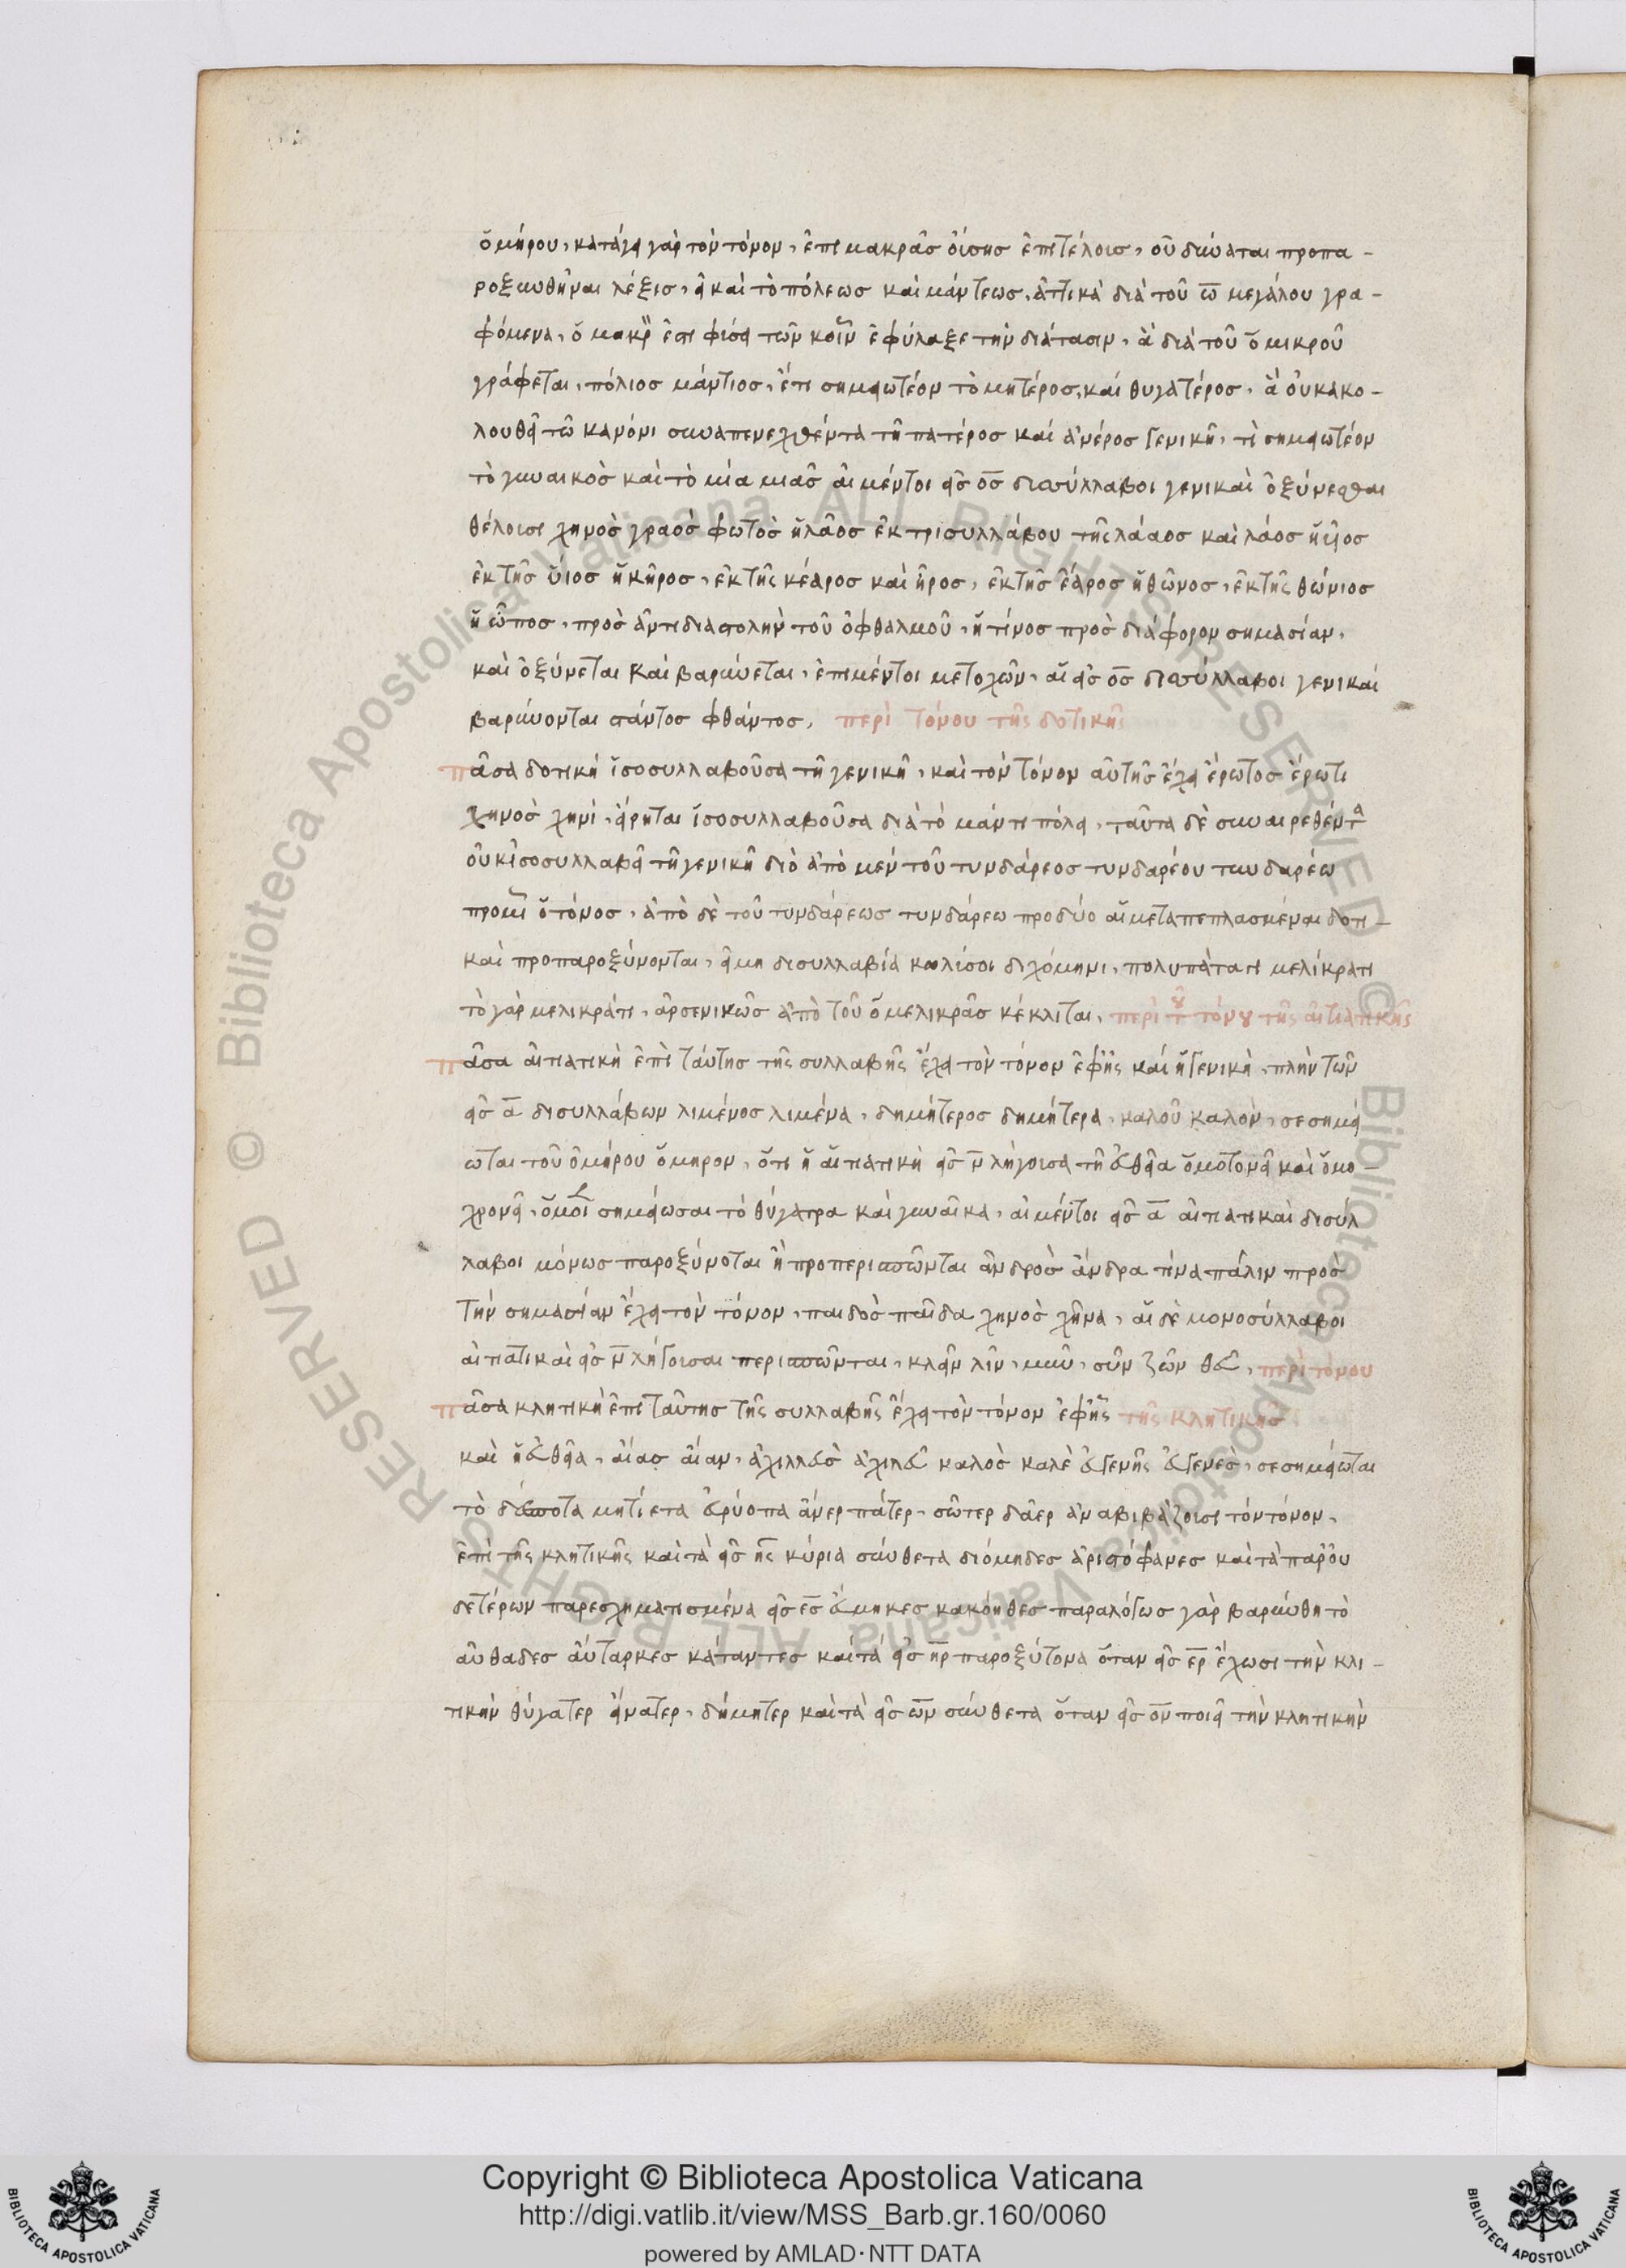 ὁμήρου, κατάγει γὰρ τὸν τόνον, ἐπὶ μακρᾶς οὔσης ἐπὶ τέλους, οὐ δύναται προπα-
ροξυνθῆναι λέξις, εἰ καὶ τὸ πόλεως καὶ μάντεως, ἀττικὰ διὰ τοῦ ω μεγάλου γρα-
φόμενα, ἐφύλαξε τὴν διάτασιν, ἃ διὰ τοῦ ο μικροῦ
γράφεται, πόλιος μάντιος, ἔτι σημειωτέον τὸ μητέρος, καὶ θυγατέρος, ἃ οὐκ ἀκο-
λουθεῖ τῶ κανόνι συναπενεχθέντα τῆ πατέρος καὶ ἀνέρος γενικῆ, τὶ σημειωτέον
τὸ γυναικὸς καὶ τὸ μία μιᾶς αἱ μέντοι εἰς ος δισύλλαβοι γενικαὶ ὀξύνεσθαι
θέλουσι χηνὸς γραὸς φωτὸς ἡ λᾶος ἐκ τρισυλλάβου τῆς λάαος καὶ λάος ἡ
ἐκ τῆς υἵιος ἡ κῆρος, ἐκ τῆς κέαρος καὶ ἦρος, ἐκ τῆς ἔαρος ἡ θῶνος, ἐκ τῆς θώνιος
ἡ ὦπος, πρὸς ἀντιδιαστολὴν τοῦ ὀφθαλμοῦ, ἡ τίνος πρὸς διάφορον σημασίαν,
καὶ ὀξύνεται καὶ βαρύνεται, ἐπὶ μέντοι μετοχῶν, αἱ εἰς ος δισύλλαβοι γενικαὶ
βαρύνονται στάντος φθάντος, περὶ τόνου τῆς δοτικῆς
πᾶσα δοτικὴ ἰσοσυλλαβοῦσα τῆ γενικῆ, καὶ τὸν τόνον αὐτῆς ἔχει ἔρωτος ἔρωτι
χηνὸς χηνί, εἴρηται ἰσοσυλλαβοῦσα διὰ τὸ μάντι πόλει, ταῦτα δὲ συναιρεθέντα
οὐκ ἰσοσυλλαβεῖ τῆ γενικῆ διὸ ἀπὸ μὲν τοῦ τυνδάρεος τυνδαρέου τυνδαρέω
ὁ τόνος, ἀπὸ δὲ τοῦ τυνδάρεως τυνδάρεω προδύο αἱ μεταπεπλασμέναι δοτι-
καὶ προπαροξύνονται, εἰ μὴ δισυλλαβία κωλύσοι διχόμηνι, πολυπάτατι μελίκρατι
τὸ γὰρ μελικράτι, ἀρσενικῶς ἀπὸ τοῦ ὁ μελικρᾶς κέκλιται, περὶ τοῦ τόνου τῆς αἰτιατικῆς
πᾶσα αἰτιατικὴ ἐπὶ ταύτης τῆς συλλαβῆς ἔχει τὸν τόνον ἐφ' ἧς καὶ ἡ γενική, πλὴν τῶν
εἰς α δισυλλάβων λιμένος λιμένα, δημήτερος δημήτερα, καλοῦ καλόν, σεσημεί
ωται τοῦ ὁμήρου ὅμηρον, ὅτι ἡ αἰτιατικὴ εἰς ν λήγουσα τῆ εὐθεῖα ὁμοτονεῖ καὶ ὁμο-
χρονεῖ, σημείωσαι τὸ θύγατρα καὶ γυναῖκα, αἱ μέντοι εἰς α αἰτιατικαὶ δισύλ
λαβοι μόνως παροξύνοται ἢ προπερισπῶνται ἀνδρὸς ἄνδρα τίνα πάλιν πρὸς
τὴν σημασίαν ἔχει τὸν τόνον, παιδὸς παῖδα χηνὸς χῆνα, αἱ δὲ μονοσύλλαβοι
αἰτιατικαὶ εἰς ν λήγουσαι περισπῶνται, κλεῖν λῖν, μῦν, σῦν ζῶν θεῦ, περὶ τόνου
πᾶσα κλητικὴ ἐπὶ ταύτης τῆς συλλαβῆς ἔχει τὸν τόνον ἐφ' ἧς τῆς κλητικῆς
καὶ ἡ εὐθεῖα, αἴας αἶαν, ἀχιλλεὺς ἀχιλεῦ καλὸς καλὲ εὐγενὴς εὐγενές, σεσημείωται
τὸ δέσποτα μητίετα εὐρύοπα ἄνερ πάτερ, σῶτερ δᾶερ ἀναβιβάζουσι τὸν τόνον,
ἐπὶ τῆς κλητικῆς καὶ τὰ εἰς ης κύρια σύνθετα διόμηδες ἀριστόφανες καὶ τὰ παρ' οὐ
δετέρων παρεσχηματισμένα εἰς ες εὔμηκες κακόηθες παραλόγως γὰρ βαρύνθη τὸ
αὔθαδες αὔταρκες κάταντες καὶ τὰ εἰς ηρ παροξύτονα ὅταν εἰς ερ ἔχωσι τὴν κλι-
τικὴν θύγατερ εἴνατερ, δήμητερ καὶ τὰ εἰς ων σύνθετα ὅταν εἰς ον ποιεῖ τὴν κλητικὴν
Copyright © Biblioteca Apostolica Vaticana
http://digi.vatlib.it/view/MSS_Barb.gr.160/0060
powered by AMLAD·NTT DATA